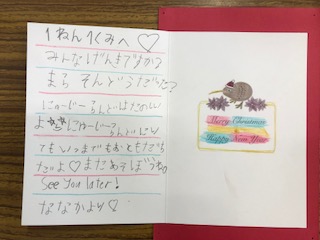 1ねん1くみへ♡
みんなげんきですか?
また そんどうだった?
にゅーじーらんどはたのしい
よ にゅーじーらんどにい
てもいつまでもおともだち
だよ♡またあそぼうね
See you later!
ななかより♡
Merry Christmas
Happy New Year